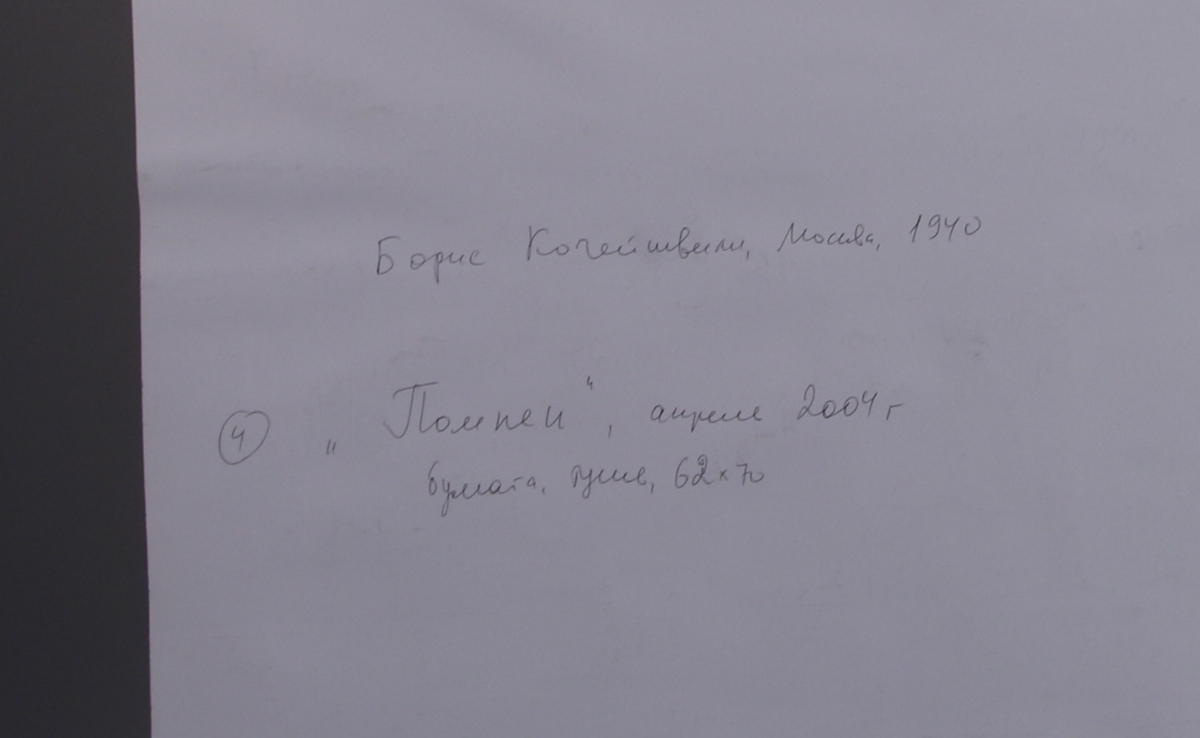 Борис Кочейшвили, Москва, 1940
④ „Помпеи“, апрель 2004 г
бумага, тушь, 62×70